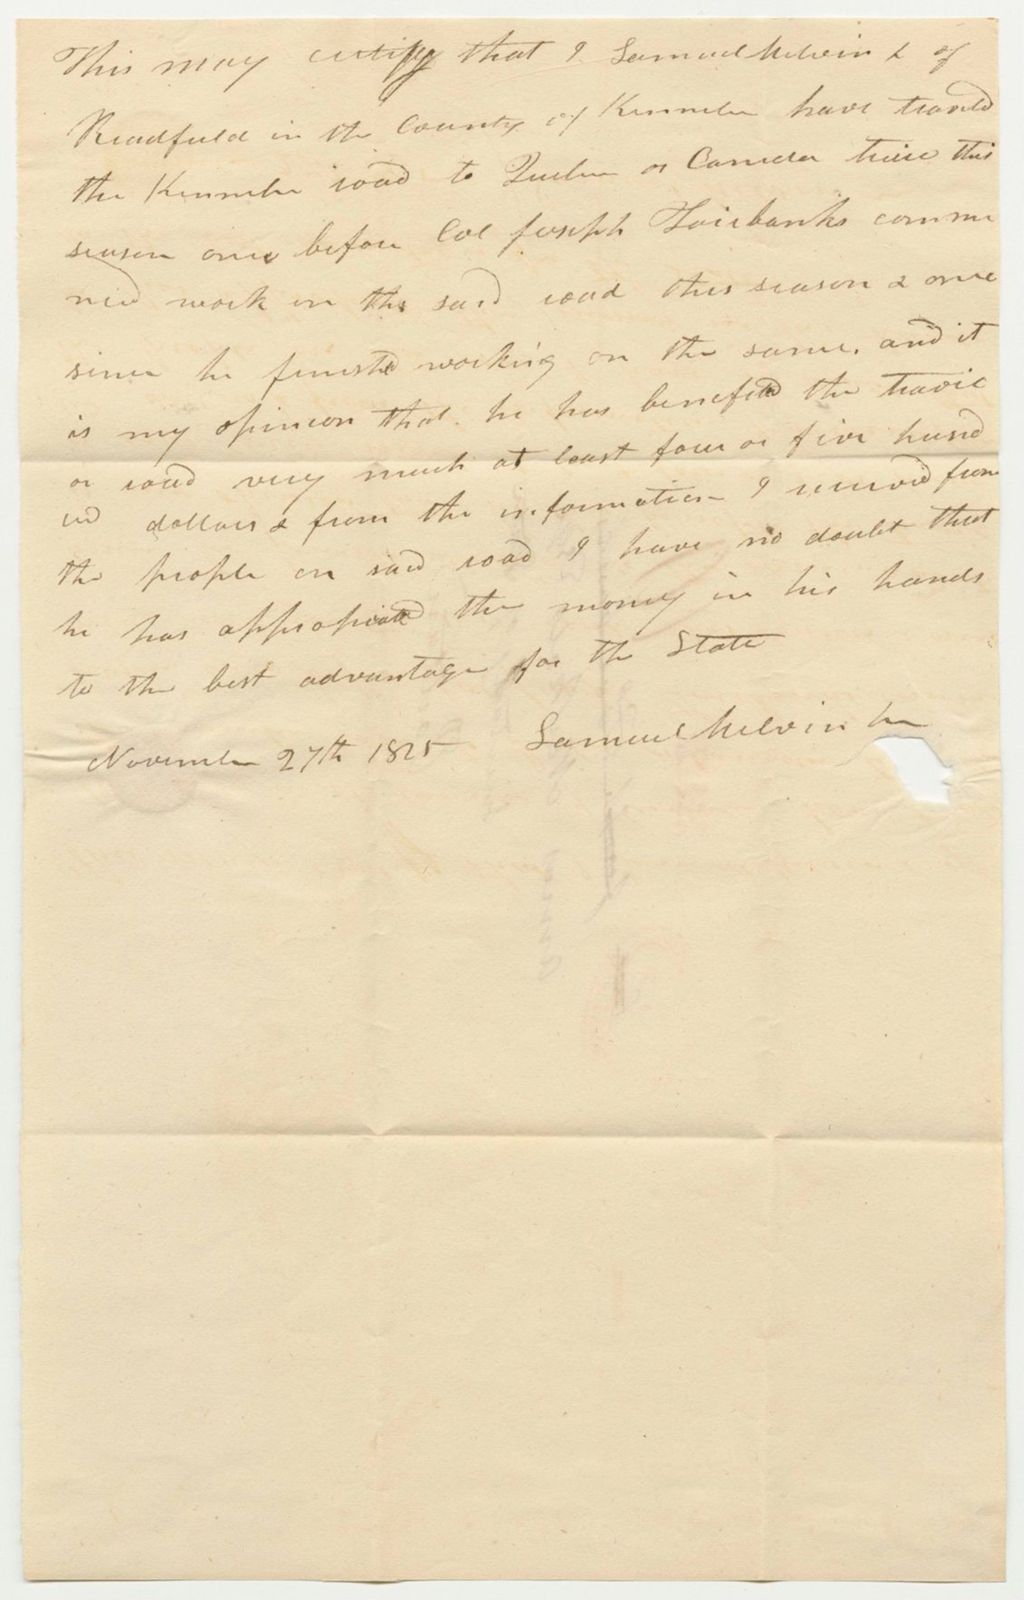 This may certify that I Samuel Melvin & of
Readfield in the County of Kennebec have traveld
the Kennebec road to Quebec or Canada twice this
season once before Col Joseph Fairbanks comme
nced work on the said road this season & once
since he finishd working on the same. and it
is my opinion that he has benefited the travil
or road very much at least four or five hund
red dollars & from the information I received from
the people on said road I have no doubt that
he has appropriated the money in his hands
to the best advantage for the State
November 27th 1825 Samuel Melvin